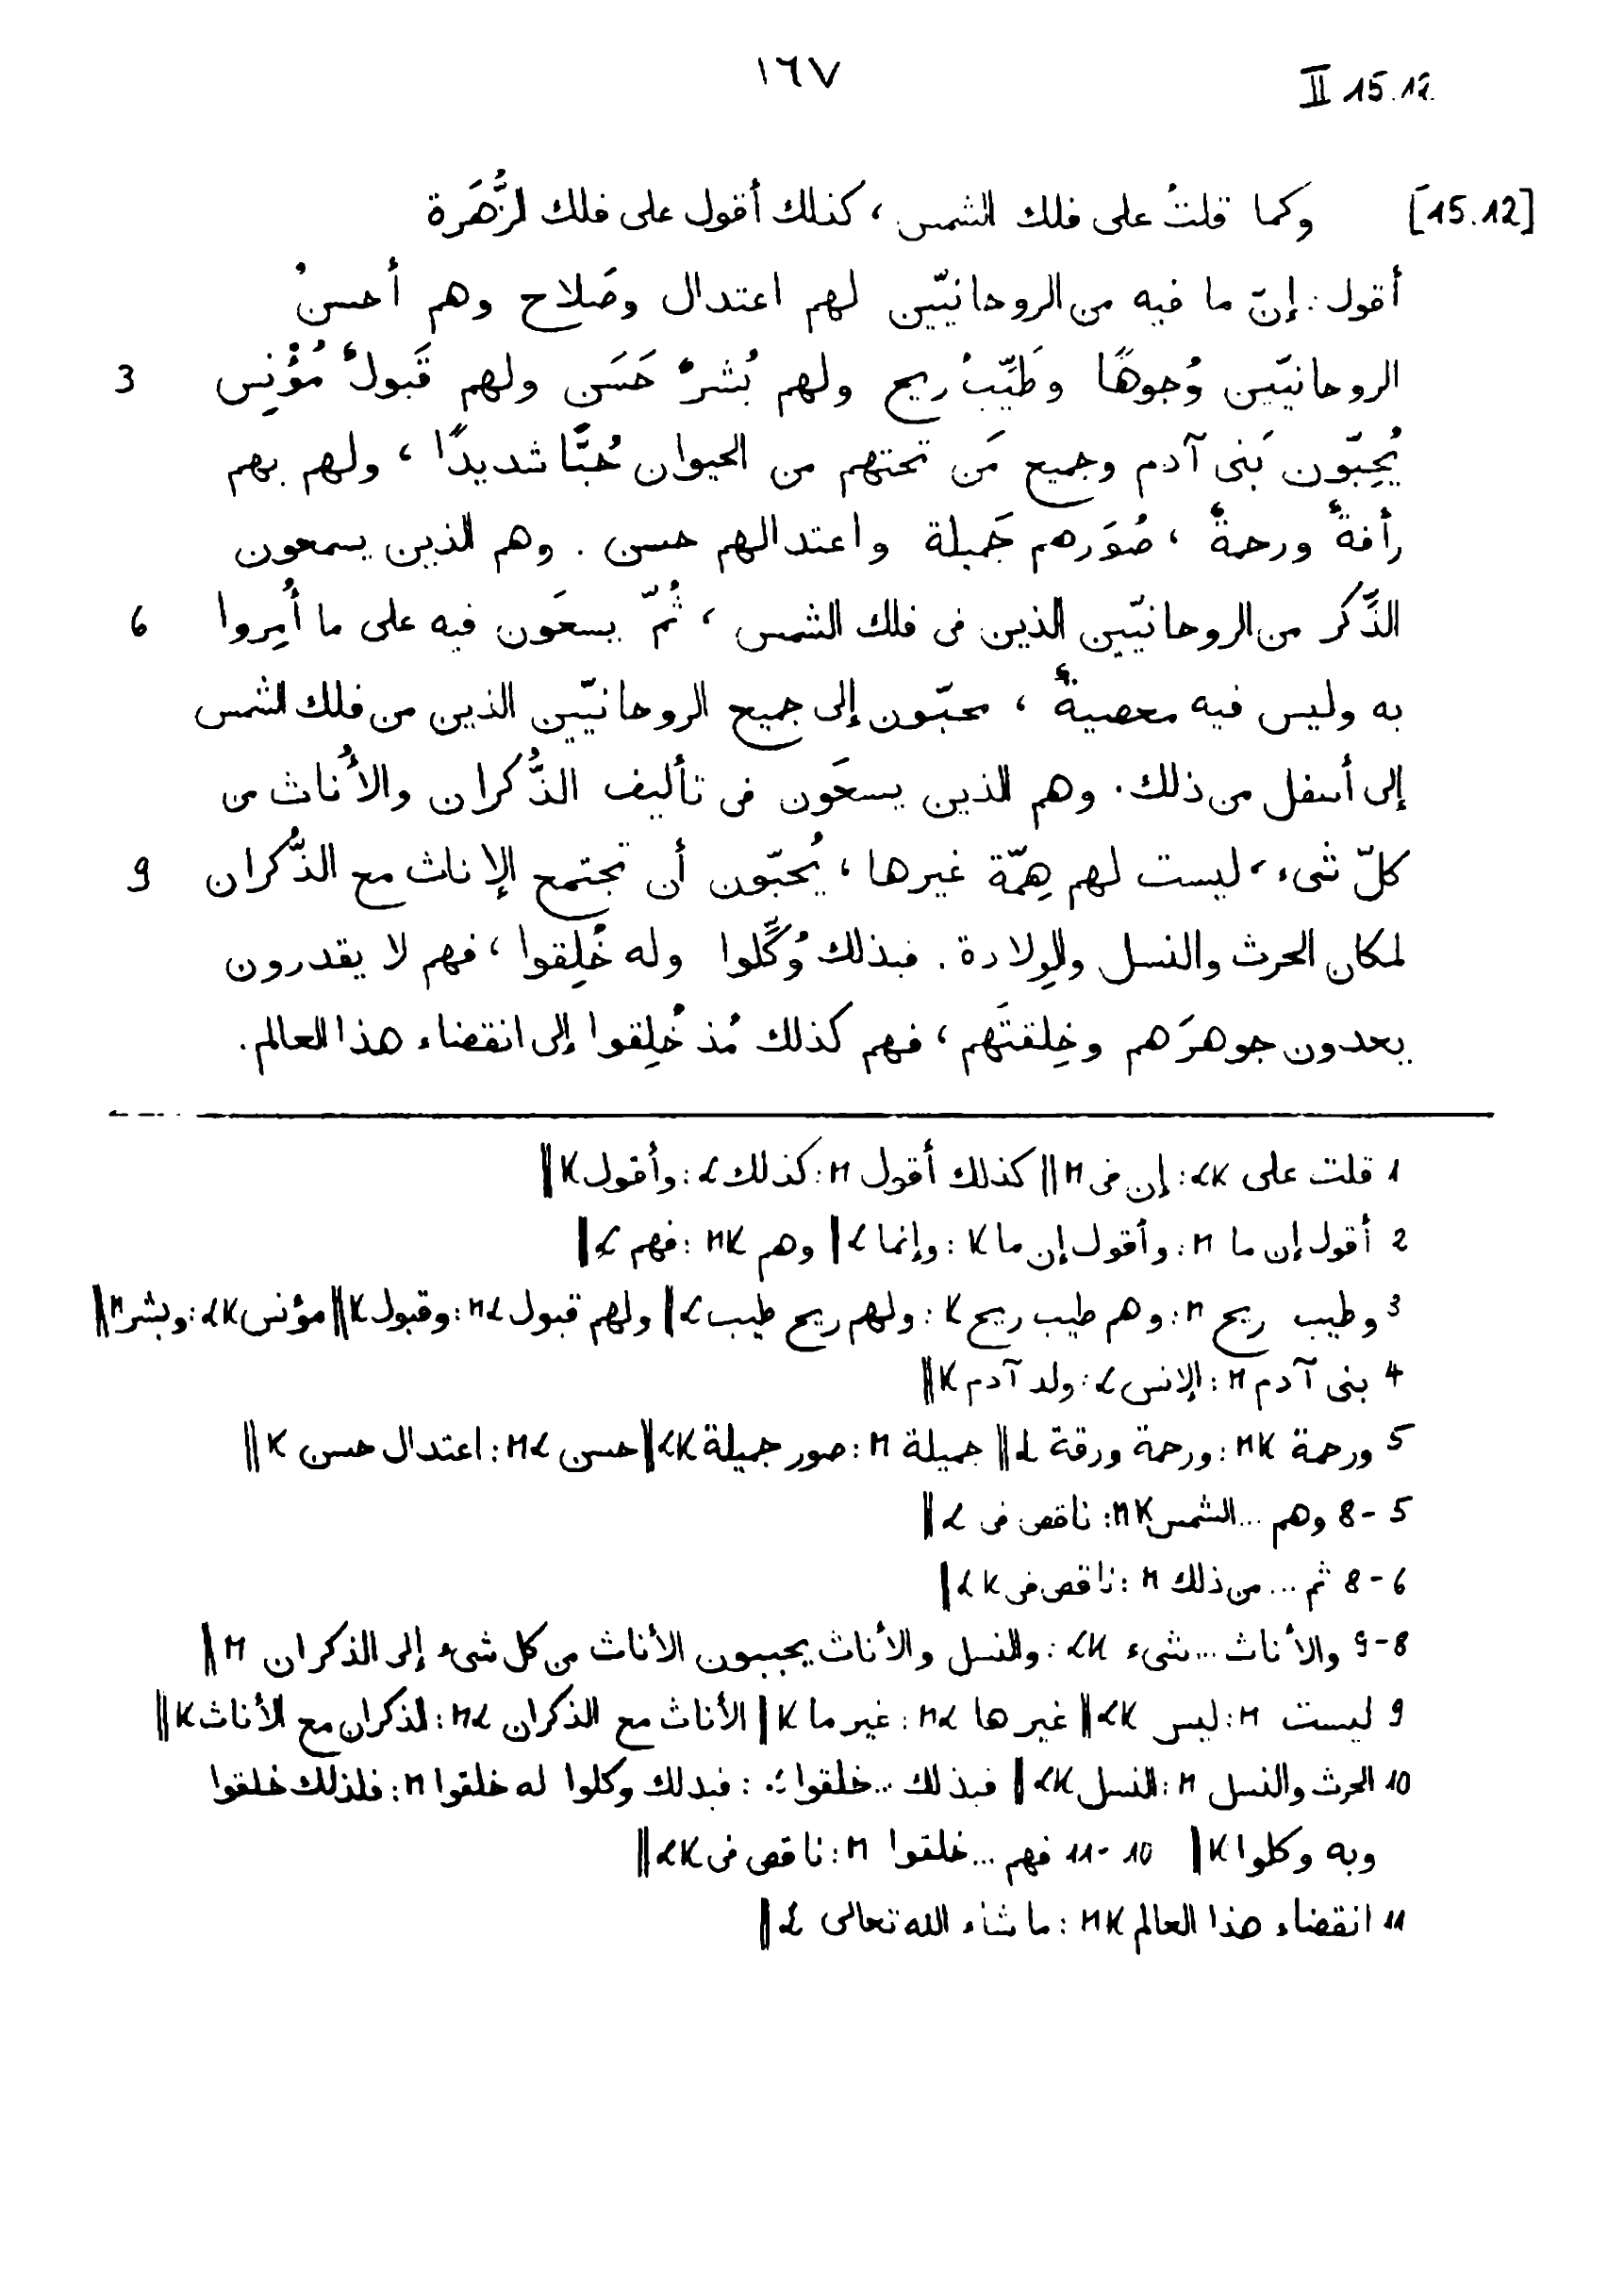 ١٦٧
II 15.12.
[15.12] وكما قلتُ على فلك الشمس، كذلك أقول على فلك الزُّهَرة
أقول: إنّ ما فيه من الروحانيّين لهم اعتدال وصَلاح وهم أحسنُ
3 الروحانيّين وُجوهًا وطَيِّبُ ريح ولهم بُشرٌ حَسَن ولهم قَبولٌ مُؤْنِس
يُحِبّون بَنى آدم وجميع مَن تحتهم من الحيوان حُبًّا شديدًا، ولهم بهم
رأفةٌ ورحمةٌ، صُوَرهم جَميلة واعتدالهم حسن. وهم الذين يسمعون
6 الذِّكر من الروحانيّين الذين فى فلك الشمس، ثُمّ يسعَون فيه على ما أُمِروا
به وليس فيه معصيةٌ، محبّون إلى جميع الروحانيّين الذين من فلك الشمس
إلى أسفل من ذلك. وهم الذين يسعَون فى تأليف الذُّكران والأُناث من
9 كلّ شىء، ليست لهم هِمّة غيرها، يُحبّون أن تجتمع الإناث مع الذُّكران
لمكان الحرث والنسل والوِلادة. فبذلك وُكِّلوا وله خُلِقوا، فهم لا يقدرون
يعدون جوهرَهم وخِلقتَهم، فهم كذلك مُذ خُلِقوا إلى انقضاء هذا العالم.
1 قلت على LK: إن فى M || كذلك أقول M: كذلك L: وأقول K ||
2 أقول إن ما M: وأقول إن ما K: وإنما L || وهم MK: فهم L ||
3 وطيب ريح M: وهم طيب ريح K: ولهم ريح طيب L || ولهم قبول ML: وقبول K || مؤنس LK: وبشر M ||
4 بنى آدم M: الإنس L: ولد آدم K ||
5 ورحمة MK: ورحمة ورقة L || جميلة M: صور جميلة LK || حسن ML: اعتدال حسن K ||
5-8 وهم ... الشمس MK: ناقص فى L ||
6-8 ثم ... من ذلك M: ناقص فى LK ||
8-9 والأناث ... شىء LK: والنسل والأناث يحببون الأناث من كل شىء إلى الذكران M ||
9 ليست M: ليس LK || غيرها ML: غير ما K || الأناث مع الذكران ML: الذكران مع الأناث K ||
10 الحرث والنسل M: النسل LK || فبذلك ... خلقوا : فبدلك وكلوا له خلقوا M: فلذلك خلقوا
وبه وكلوا K || 10-11 فهم ... خلقوا M: ناقص فى LK ||
11 انقضاء هذا العالم MK: ما شاء الله تعالى L ||